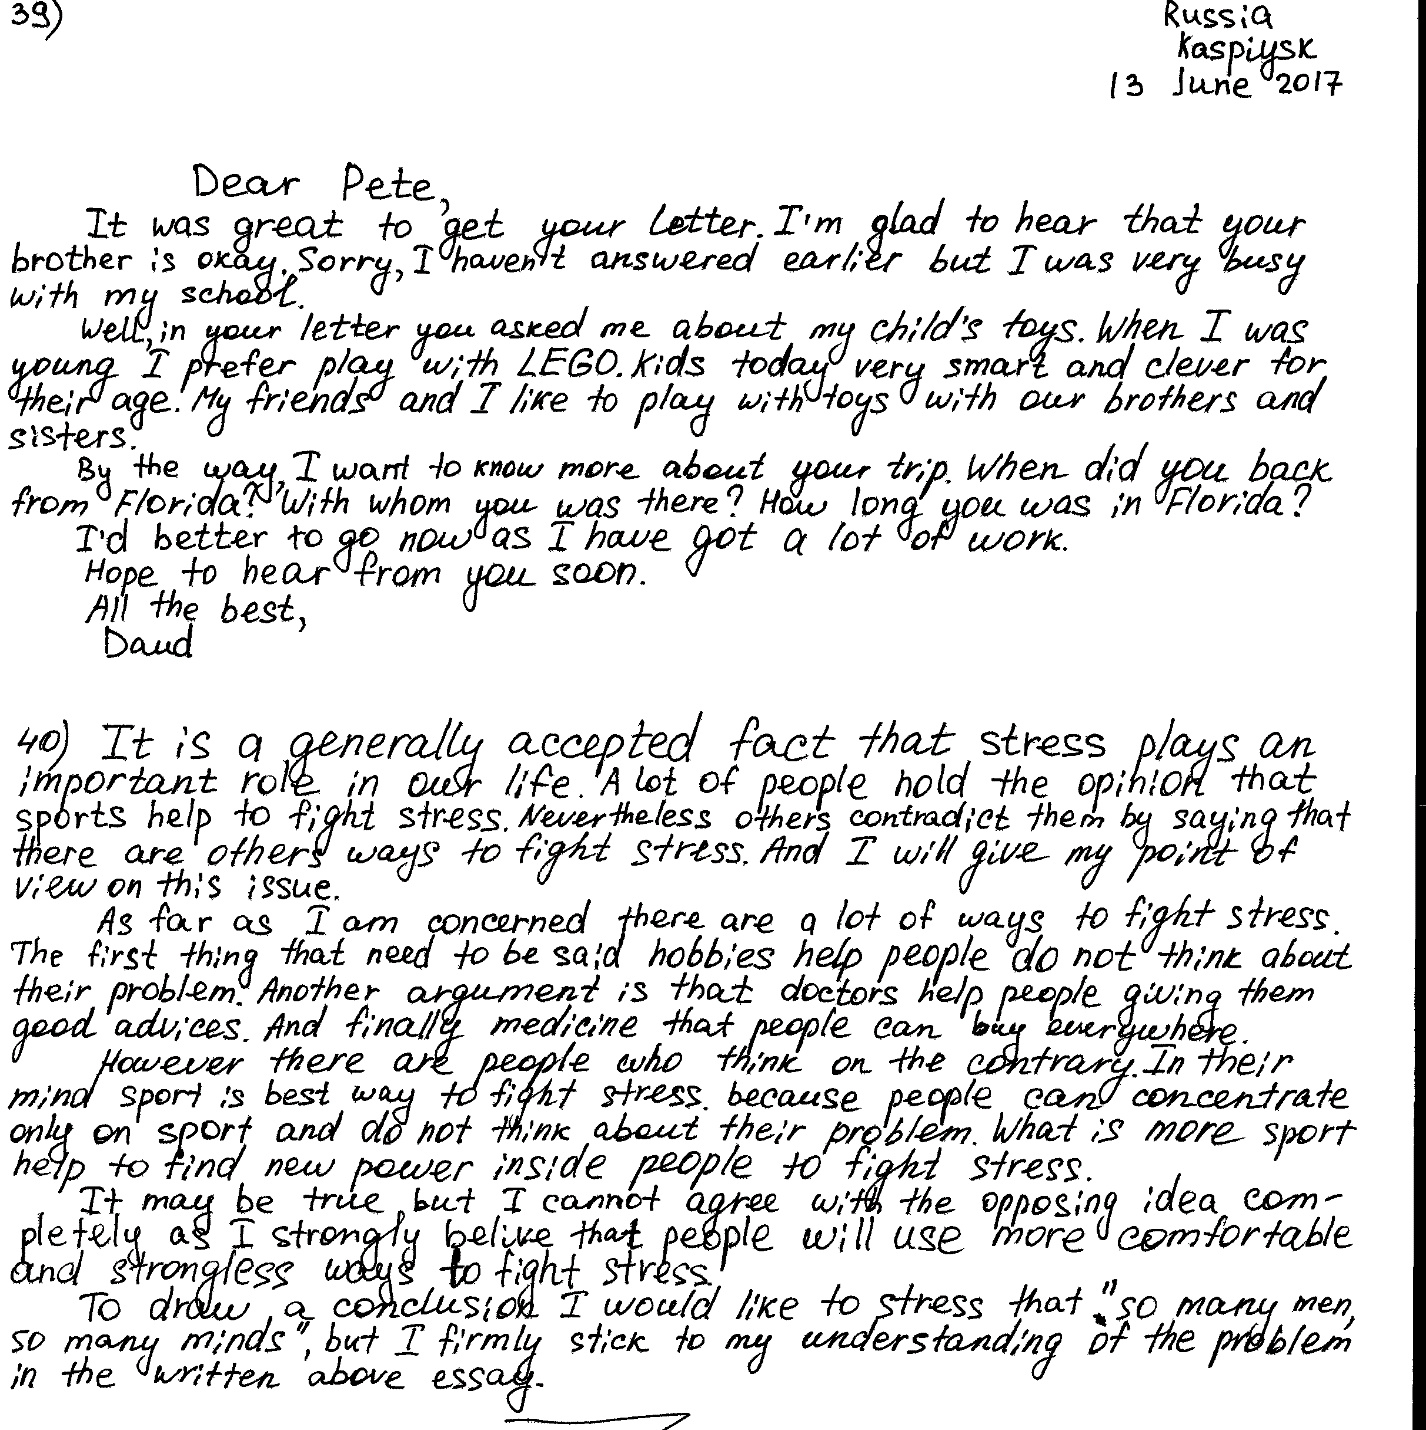 39)
Russia
Kaspiysk
13 June 2017
Dear Pete,
It was great to get your letter. I'm glad to hear that your
brother is okay. Sorry, I haven't answered earlier but I was very busy
with my school.
Well, in your letter you asked me about my child's toys. When I was
young I prefer play with LEGO. Kids today very smart and clever for
their age. My friends and I like to play with toys with our brothers and
sisters.
By the way, I want to know more about your trip. When did you back
from Florida? With whom you was there? How long you was in Florida?
I'd better to go now as I have got a lot of work.
Hope to hear from you soon.
All the best,
Daud
40) It is a generally accepted fact that stress plays an
important role in our life. A lot of people hold the opinion that
sports help to fight stress. Nevertheless others contradict them by saying that
there are others ways to fight stress. And I will give my point of
view on this issue.
As far as I am concerned there are a lot of ways to fight stress.
The first thing that need to be said hobbies help people do not think about
their problem. Another argument is that doctors help people giving them
good advices. And finally medicine that people can buy everywhere.
However there are people who think on the contrary. In their
mind sport is best way to fight stress. because people can concentrate
only on sport and do not think about their problem. What is more sport
help to find new power inside people to fight stress.
It may be true, but I cannot agree with the opposing idea com-
pletely as I strongly belive that people will use more comfortable
and strongless ways to fight stress.
To draw a conclusion I would like to stress that "so many men,
so many minds", but I firmly stick to my understanding of the problem
in the written above essay.